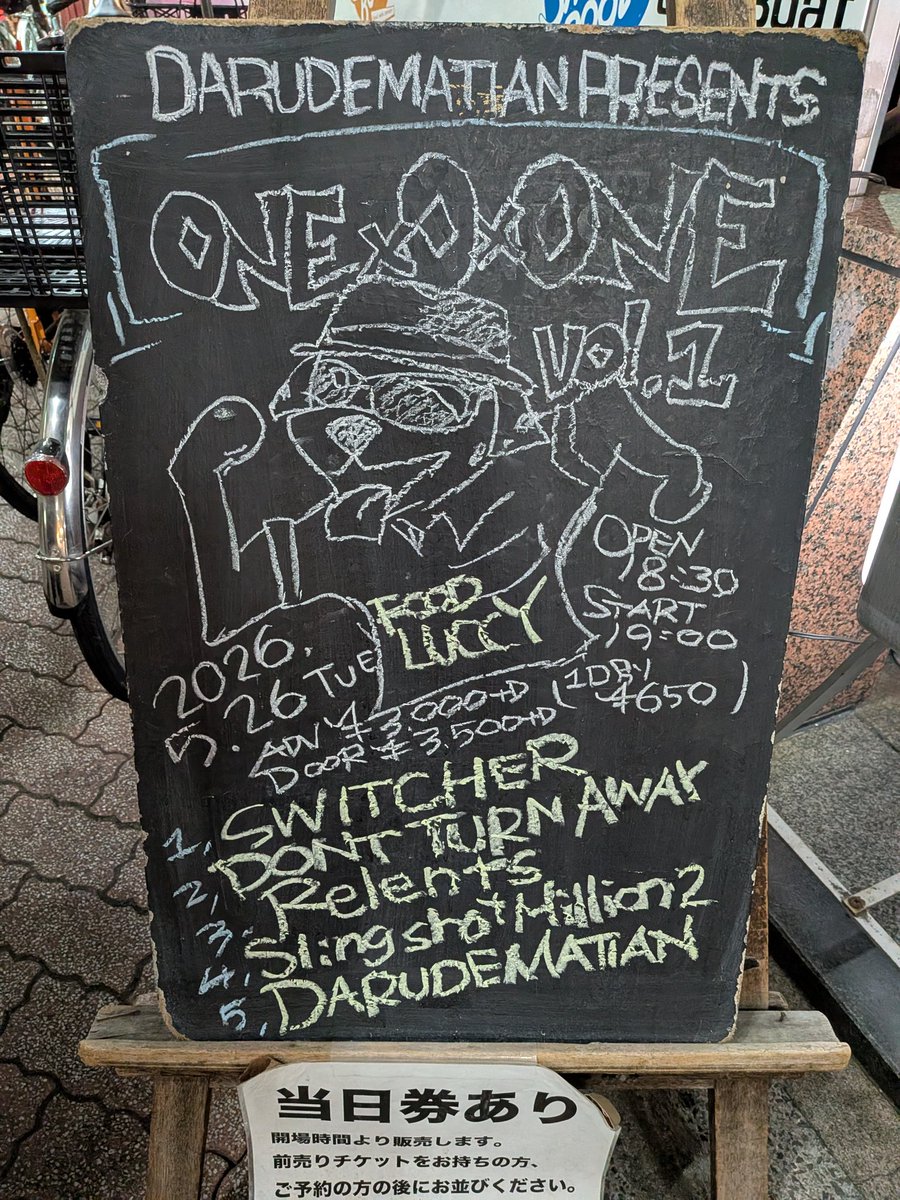 DARUDEMATIAN PRESENTS
ONExOxONE
Vol.1
OPEN
18:30
START
19:00
FOOD
LUCCY
2026.
5.26 TUE
ADV ¥3.000+D
DOOR ¥3.500+D
(1DRI
¥650)
1, SWITCHER
2, DONT TURN AWAY
3. Relents
4. Sling shot Million2
5, DARUDEMATIAN
当日券あり
開場時間より販売します。
前売りチケットをお持ちの方、
ご予約の方の後にお並びください。